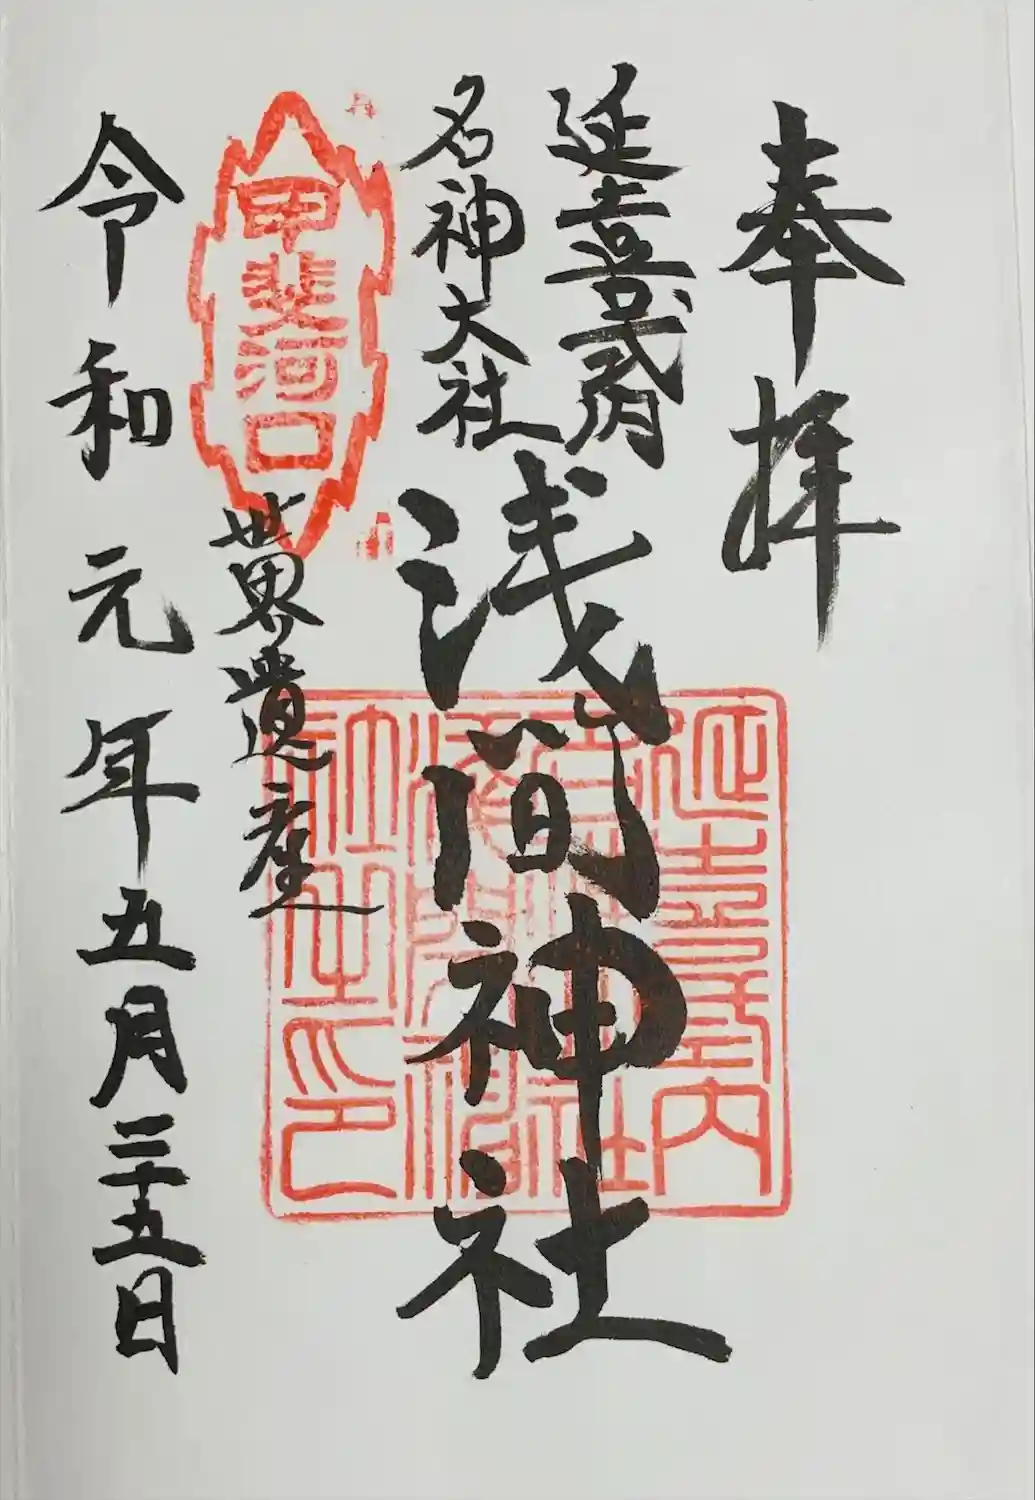 奉拝
延喜式内
名神大社
浅间神社
甲斐河口
世界遺産
令和元年五月二十五日
延喜式内